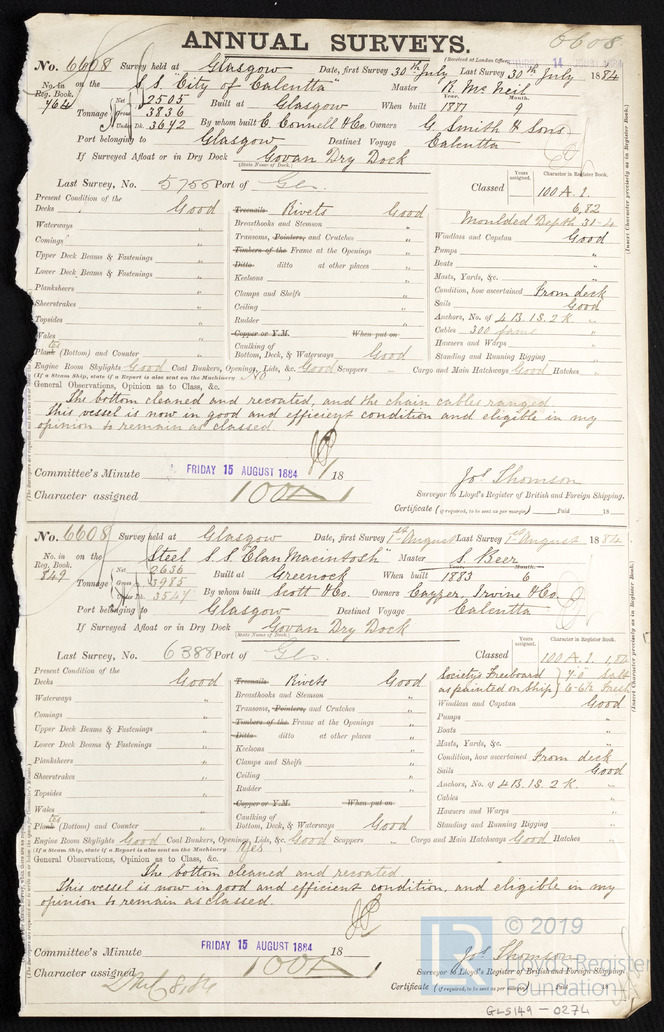 ANNUAL SURVEYS. 6608
(Received at London Office, 14 AUGUST 84
No. 6608 Survey held at Glasgow Date, first Survey 30th July Last Survey 30th July 1884
No. in Reg. Book. 764 on the S.S. "City of Calcutta" Master R. McNeil
Tonnage Net 2505 Gross 3836 Under Dk. 3642
Built at Glasgow When built Year. 1881 Month. 9
By whom built C. Connell & Co. Owners G. Smith & Sons
Port belonging to Glasgow Destined Voyage Calcutta
If Surveyed Afloat or in Dry Dock Govan Dry Dock
(State Name of Dock.)
Last Survey, No. 5755 Port of Gls. Classed Years assigned. Character in Register Book. 100 A. 1. 6,82
Moulded Depth 31-4
Present Condition of the
Decks Good
Waterways "
Comings "
Upper Deck Beams & Fastenings "
Lower Deck Beams & Fastenings "
Planksheers "
Sheerstrakes "
Topsides "
Wales "
Plates (Bottom) and Counter "
Treenails Rivets Good
Breasthooks and Stemson "
Transoms, Pointers, and Crutches "
Timbers of the Frame at the Openings "
Ditto ditto at other places "
Keelsons "
Clamps and Shelfs "
Ceiling "
Rudder "
Copper or Y.M. When put on
Caulking of
Bottom, Deck, & Waterways Good
Windlass and Capstan Good
Pumps "
Boats "
Masts, Yards, &c. "
Condition, how ascertained From deck
Sails Good
Anchors, No. of 4 B. 1 S. 2 K. "
Cables 300 fams "
Hawsers and Warps "
Standing and Running Rigging "
Engine Room Skylights Good Coal Bunkers, Openings, Lids, &c. Good Scuppers " Cargo and Main Hatchways Good Hatches "
(If a Steam Ship, state if a Report is also sent on the Machinery No
General Observations, Opinion as to Class, &c.
The bottom cleaned and recoated, and the chain cables ranged
This vessel is now in good and efficient condition and eligible in my
opinion to remain as classed.
Committee's Minute FRIDAY 15 AUGUST 1884 18
Jos. Thomson
Character assigned 100 A 1
Surveyor to Lloyd's Register of British and Foreign Shipping.
Certificate (if required, to be sent as per margin) Paid 18
(Insert Character precisely as in Register Book.)
No. 6608 Survey held at Glasgow Date, first Survey 1st August Last Survey 1st August 1884
No. in Reg. Book. 849 on the Steel S.S. "Clan Macintosh" Master S. Beer
Tonnage Net 2636 Gross 3985 Under Dk. 3547
Built at Greenock When built Year. 1883 Month. 6
By whom built Scott & Co. Owners Cayzer, Irvine & Co.
Port belonging to Glasgow Destined Voyage Calcutta
If Surveyed Afloat or in Dry Dock Govan Dry Dock
(State Name of Dock.)
Last Survey, No. 6388 Port of Gls. Classed Years assigned. Character in Register Book. 100 A. 1. 1,84
Society's Freeboard } 7.0" Salt
as painted on Ship } 6-6½ Fresh
Present Condition of the
Decks Good
Waterways "
Comings "
Upper Deck Beams & Fastenings "
Lower Deck Beams & Fastenings "
Planksheers "
Sheerstrakes "
Topsides "
Wales "
Plates (Bottom) and Counter "
Treenails Rivets Good
Breasthooks and Stemson "
Transoms, Pointers, and Crutches "
Timbers of the Frame at the Openings "
Ditto ditto at other places "
Keelsons "
Clamps and Shelfs "
Ceiling "
Rudder "
Copper or Y.M. When put on
Caulking of
Bottom, Deck, & Waterways Good
Windlass and Capstan Good
Pumps "
Boats "
Masts, Yards, &c. "
Condition, how ascertained From deck
Sails Good
Anchors, No. of 4 B. 1 S. 2 K. "
Cables "
Hawsers and Warps "
Standing and Running Rigging "
Engine Room Skylights Good Coal Bunkers, Openings, Lids, &c. Good Scuppers " Cargo and Main Hatchways Good Hatches "
(If a Steam Ship, state if a Report is also sent on the Machinery Yes
General Observations, Opinion as to Class, &c.
The bottom cleaned and recoated
This vessel is now in good and efficient condition, and eligible in my
opinion to remain as classed.
Committee's Minute FRIDAY 15 AUGUST 1884 18
Jos. Thomson
Character assigned 100 A 1
Surveyor to Lloyd's Register of British and Foreign Shipping.
Certificate (if required, to be sent as per margin) Paid 18
(Insert Character precisely as in Register Book.)
© 2019
Lloyd's Register
Foundation
GLS149-0274